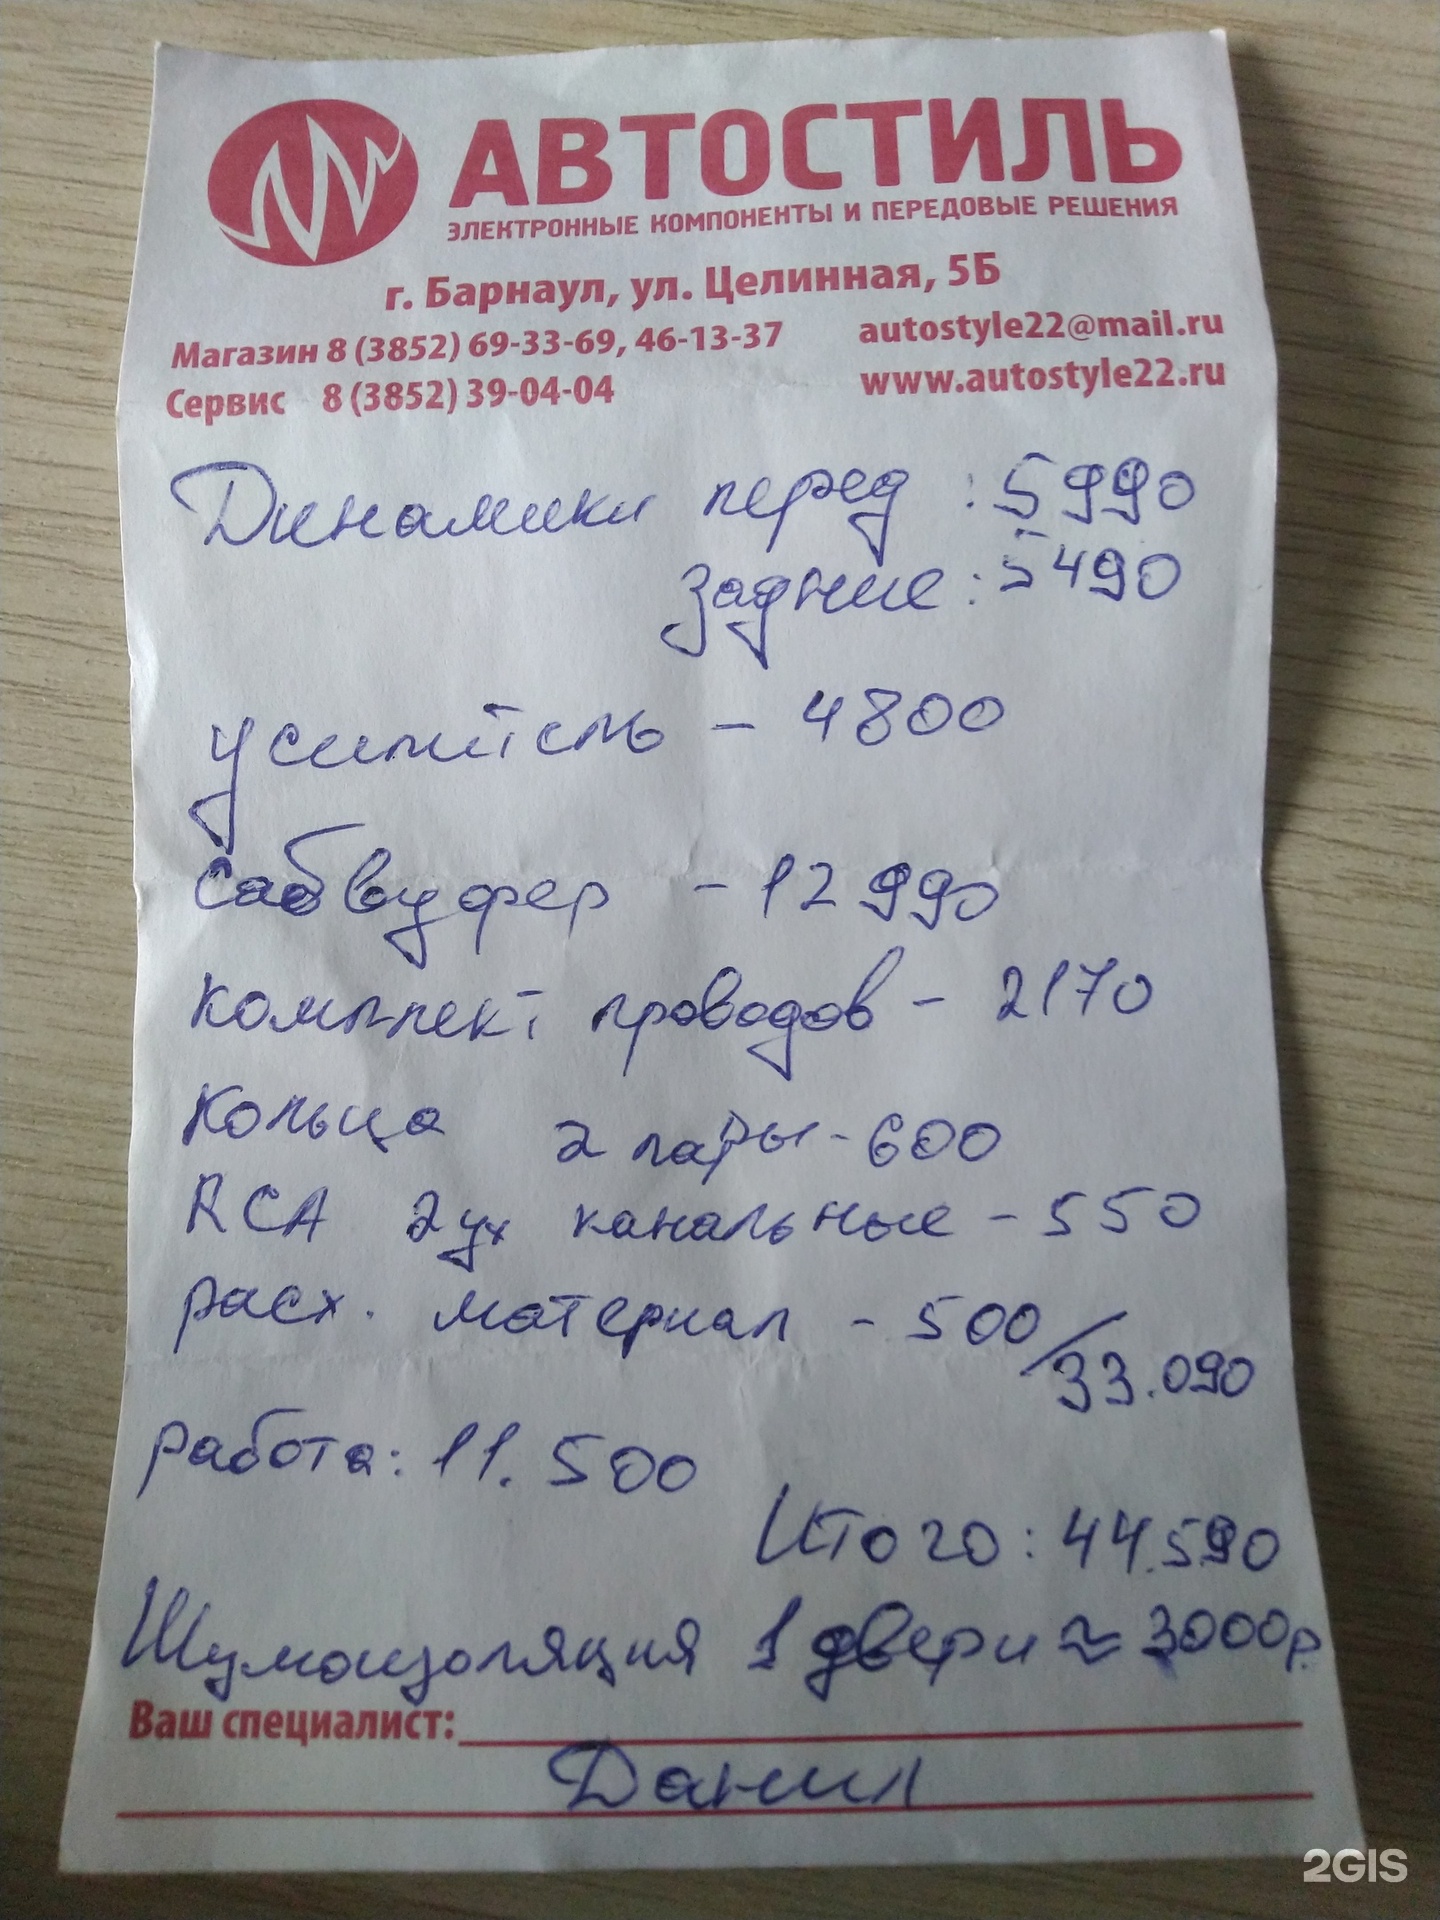 АВТОСТИЛЬ
ЭЛЕКТРОННЫЕ КОМПОНЕНТЫ И ПЕРЕДОВЫЕ РЕШЕНИЯ
г. Барнаул, ул. Целинная, 5Б
Магазин 8 (3852) 69-33-69, 46-13-37 autostyle22@mail.ru
Сервис 8 (3852) 39-04-04 www.autostyle22.ru
Динамики перед : 5990
задние : 5490
усилитель - 4800
Сабвуфер - 12990
комплект проводов - 2170
кольца 2 пары - 600
RCA 2ух канальные - 550
расх. материал - 500
33.090
работа: 11.500
Итого : 44.590
Шумоизоляция 1 двери ≈ 3000р.
Ваш специалист:
Данил
2GIS